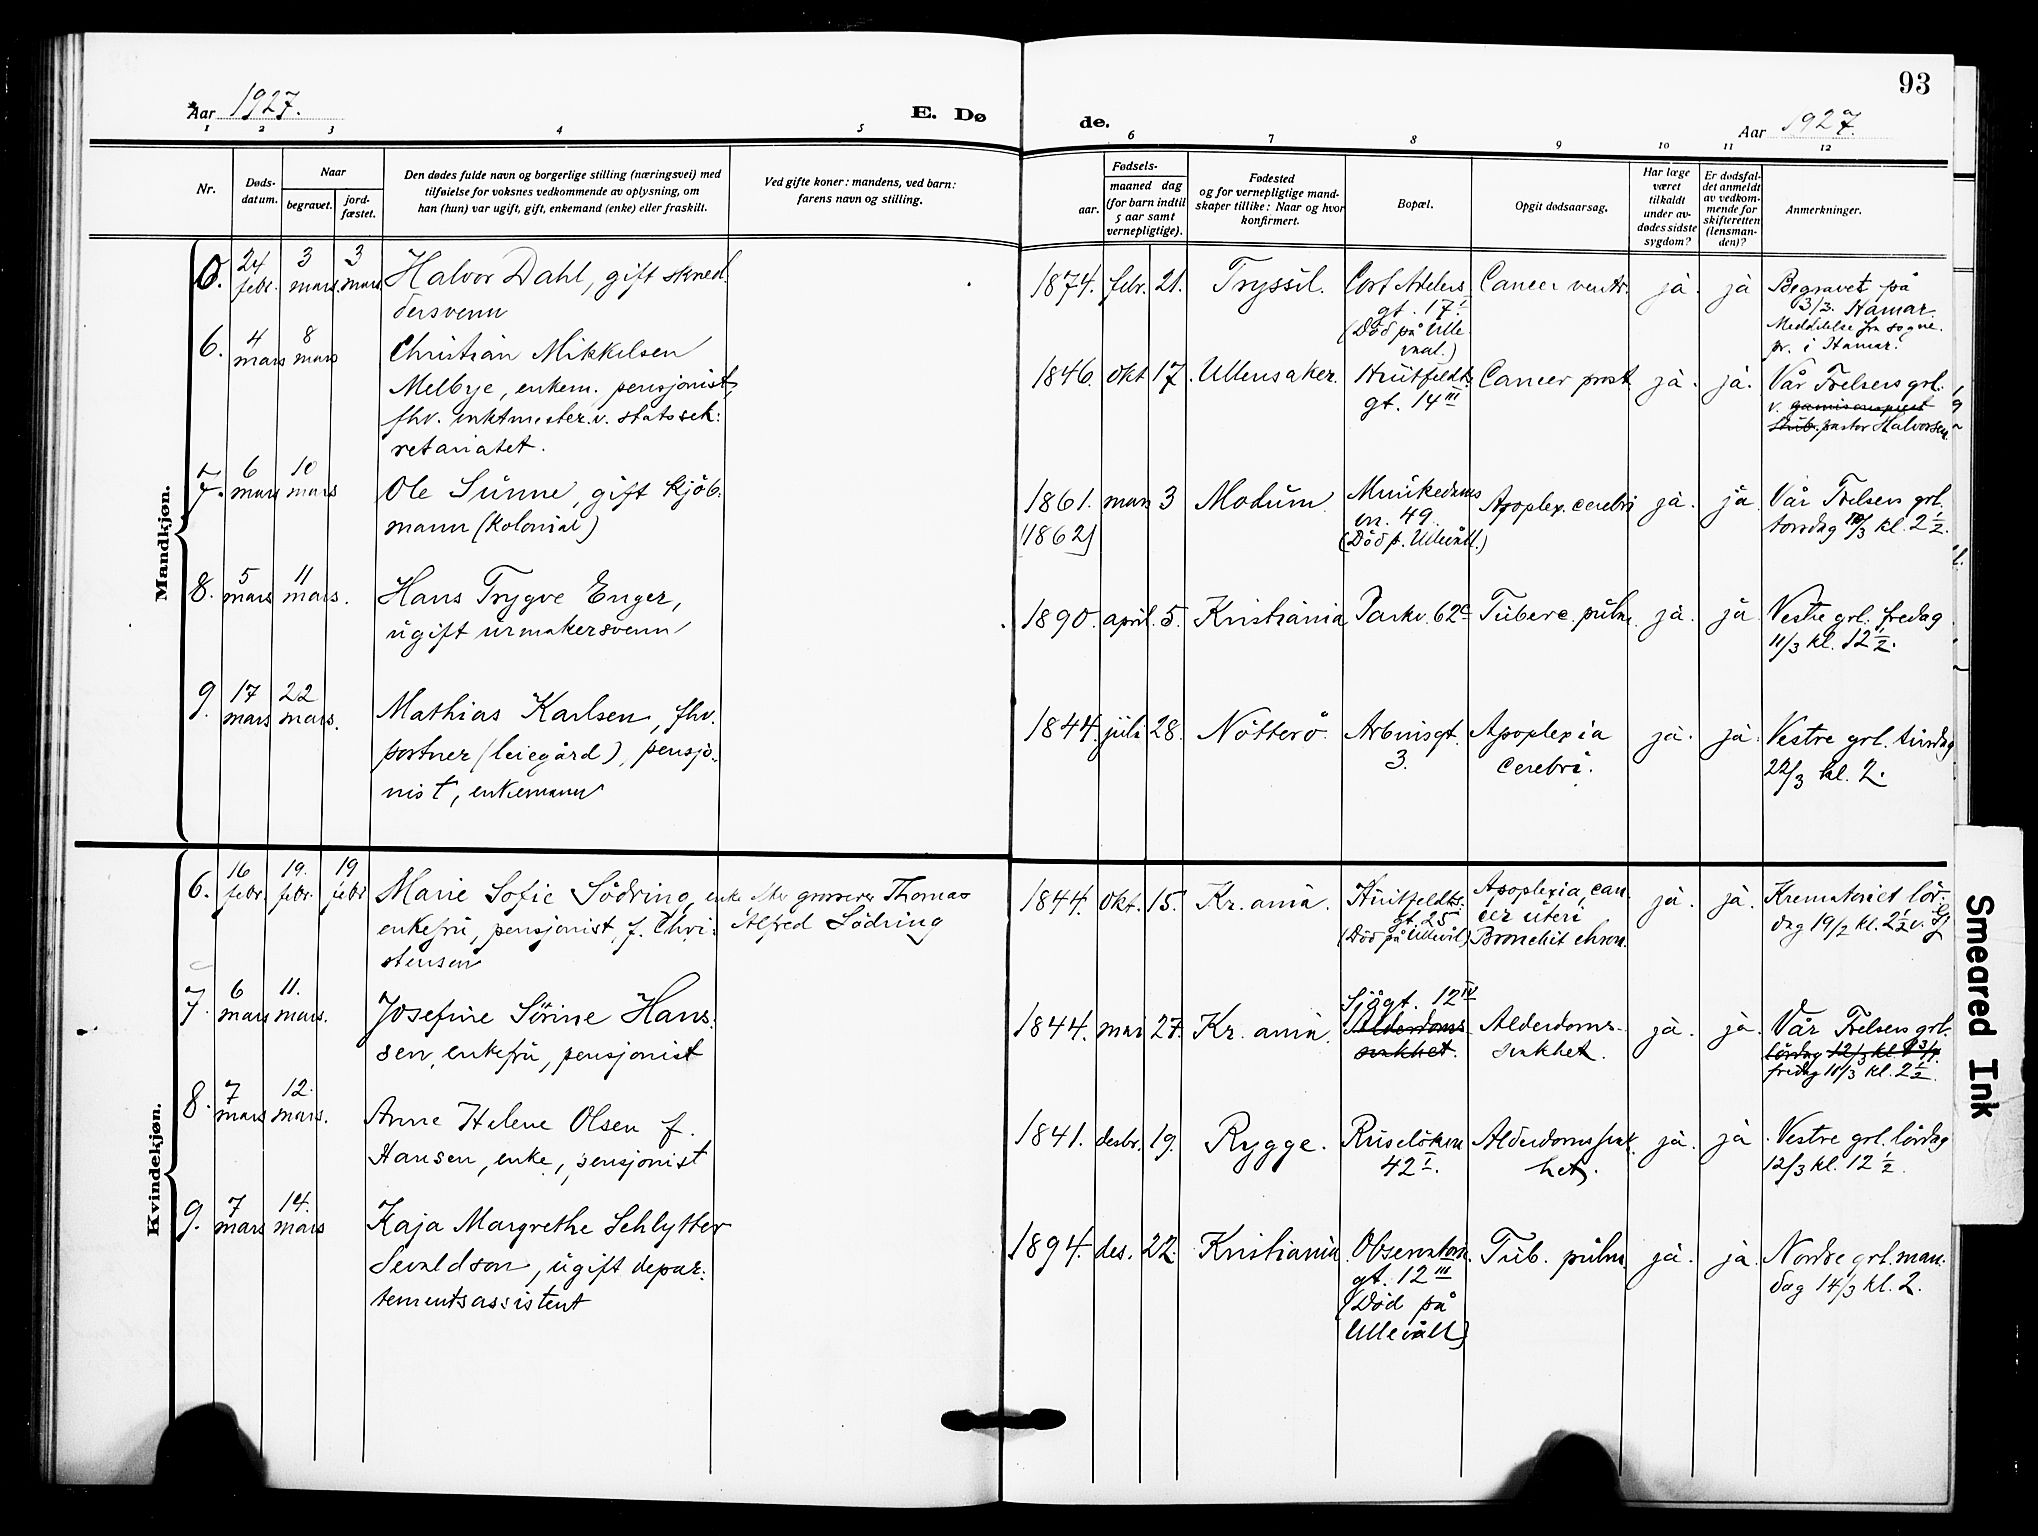 93
Aar 1927.
E. Dø
de.
Aar 1927.
1 2 3 4 5 6 7 8 9 10 11 12
Nr.
Døds-
datum.
Naar
begravet.
jord-
fæstet.
Den dødes fulde navn og borgerlige stilling (næringsvei) med
tilføielse for voksnes vedkommende av oplysning, om
han (hun) var ugift, gift, enkemand (enke) eller fraskilt.
Ved gifte koner: mandens, ved barn:
farens navn og stilling.
Fødsels-
aar.
maaned dag
(for barn indtil
5 aar samt
vernepligtige).
Fødested
og for vernepligtige mand-
skaper tillike: Naar og hvor
konfirmert.
Bopæl.
Opgit dødsaarsag.
Har læge
været
tilkaldt
under av-
dødes sidste
sygdom?
Er dødsfal-
det anmeldt
av vedkom-
mende for
skifteretten
(lensman-
den)?
Anmerkninger.
Mandkjøn.
24 febr. 3 mars 3 mars
Halvor Dahl, gift skred-
dersvenn
1874. febr. 21. Tryssil.
Cort Adelers
gt. 17 I
(Død på Ulle
vaal.)
Cancer ventr. ja. ja
Begravet på
3/3. Hamar.
Meddelelse fra sogne-
pr. i Hamar.
6. 4 mars 8 mars
Christian Mikkelsen
Melbye, enkem. pensjonist,
fhv. vaktmester v. statssek:
retariatet.
1846. okt 17. Ullensaker.
Huitfeldts
gt. 14 III
Cancer prost. ja. ja.
Vår Frelsers grl.
v. garnisonsprest
pastor Halvorsen.
7. 6 mars 10 mars
Ole Sunne, gift kjöb-
mann (kolonial)
1861. mars 3 Modum
(1862)
Munkedams
vn. 49.
(Död p. Ullevåll.)
Apoplex. cerebri ja. ja.
Vår Frelsers grl.
torsdag 10/3 kl. 2 1/2.
8. 5 mars 11 mars.
Hans Trygve Enger,
ugift urmakersvenn
1890. april. 5. Kristiania Parkv. 62c Tuberc. pulm. ja. ja
Vestre grl. fredag
11/3 kl. 12 1/2.
9. 17 mars 22 mars.
Mathias Karlsen, fhv.
portner (leiegård), pensjo-
nist, enkemann
1844. juli 28. Nötterö.
Arbinsgt.
3.
Apoplexia
cerebri.
ja. ja.
Vestre grl. tirsdag
22/3 kl. 2.
Kvindekjøn.
6. 16 febr. 19. febr. 19 febr
Marie Sofie Södring,
enkefru, pensjonist, f. Chri-
stensen
enke efter grosserer Thomas
Alfred Södring
1844. okt. 15. Kr.ania.
Huitfeldts
gt. 25
(Död på Ullevål)
Apoplexia, can-
cer uteri,
Bronchit chron.
ja. ja.
Krematoriet lör-
dag 19/2 kl. 2 1/2
7. 6 mars 11. mars.
Josefine Sörine Hans-
sen, enkefru, pensjonist
1844. mai 27. Kr.ania.
Sjögt. 12 IV
Alderdoms
svakhet.
Alderdoms-
svakhet.
ja. ja.
Vår Frelsers grl.
lördag 12/3 kl. 1 3/4.
fredag 11/3 kl. 2 1/2.
8. 7 mars 12. mars.
Anne Helene Olsen f.
Hansen, enke, pensjonist
1841. desbr. 19. Rygge.
Ruselökvn
42 I.
Alderdomssvak-
het.
ja. ja.
Vestre grl. lördag
12/3 kl. 12 1/2.
9. 7 mars 14. mars
Kaja Margrethe Schlytter
Sevaldson, ugift depar-
tementsassistent
1894. des. 22. Kristiania
Observatorie
gt. 12 III
(Död på
Ullevåll)
Tub. pulm ja. ja.
Nordre grl. man-
dag 14/3 kl. 2.
Smeared Ink